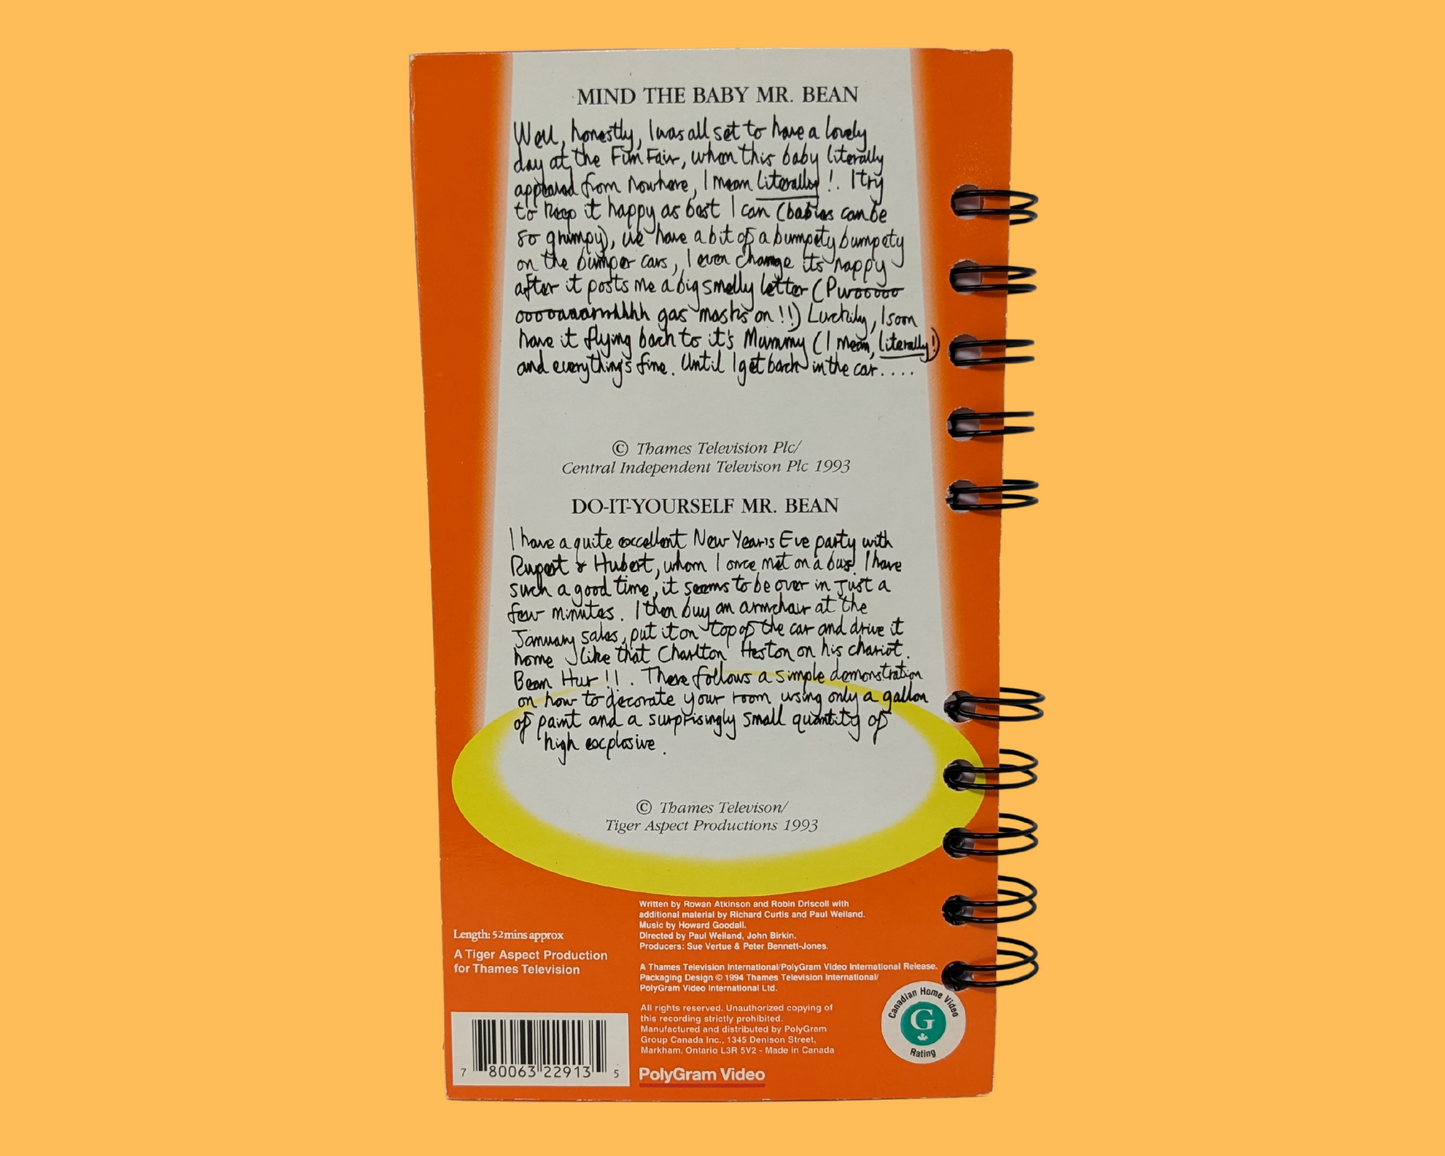 MIND THE BABY MR. BEAN
Well, honestly, I was all set to have a lovely
day at the Fun Fair, when this baby literally
appeared from nowhere, I mean literally!. I try
to keep it happy as best I can (babies can be
so grumpy), we have a bit of a bumpety bumpety
on the bumper cars, I even change its nappy
after it posts me a big smelly letter (Pwooooo
oooooaaarrhhhh gas masks on!!) Luckily, I soon
have it flying back to it's Mummy (I mean, literally!)
and everything's fine. Until I get back in the car....
© Thames Television Plc/
Central Independent Televison Plc 1993
DO-IT-YOURSELF MR. BEAN
I have a quite excellent New Year's Eve party with
Rupert & Hubert, whom I once met on a bus! I have
such a good time, it seems to be over in just a
few minutes. I then buy an armchair at the
January sales, put it on top of the car and drive it
home like that Charlton Heston on his chariot.
Bean Hur!!. There follows a simple demonstration
on how to decorate your room using only a gallon
of paint and a surprisingly small quantity of
high explosive.
© Thames Televison/
Tiger Aspect Productions 1993
Written by Rowan Atkinson and Robin Driscoll with
additional material by Richard Curtis and Paul Weiland.
Music by Howard Goodall.
Directed by Paul Weiland, John Birkin.
Producers: Sue Vertue & Peter Bennett-Jones.
Length: 52mins approx
A Tiger Aspect Production
for Thames Television
A Thames Television International/PolyGram Video International Release.
Packaging Design © 1994 Thames Television International/
PolyGram Video International Ltd.
All rights reserved. Unauthorized copying of
this recording strictly prohibited.
Manufactured and distributed by PolyGram
Group Canada Inc., 1345 Denison Street,
Markham, Ontario L3R 5V2 - Made in Canada
PolyGram Video
Canadian Home Video
G
Rating
7 80063 22913 5